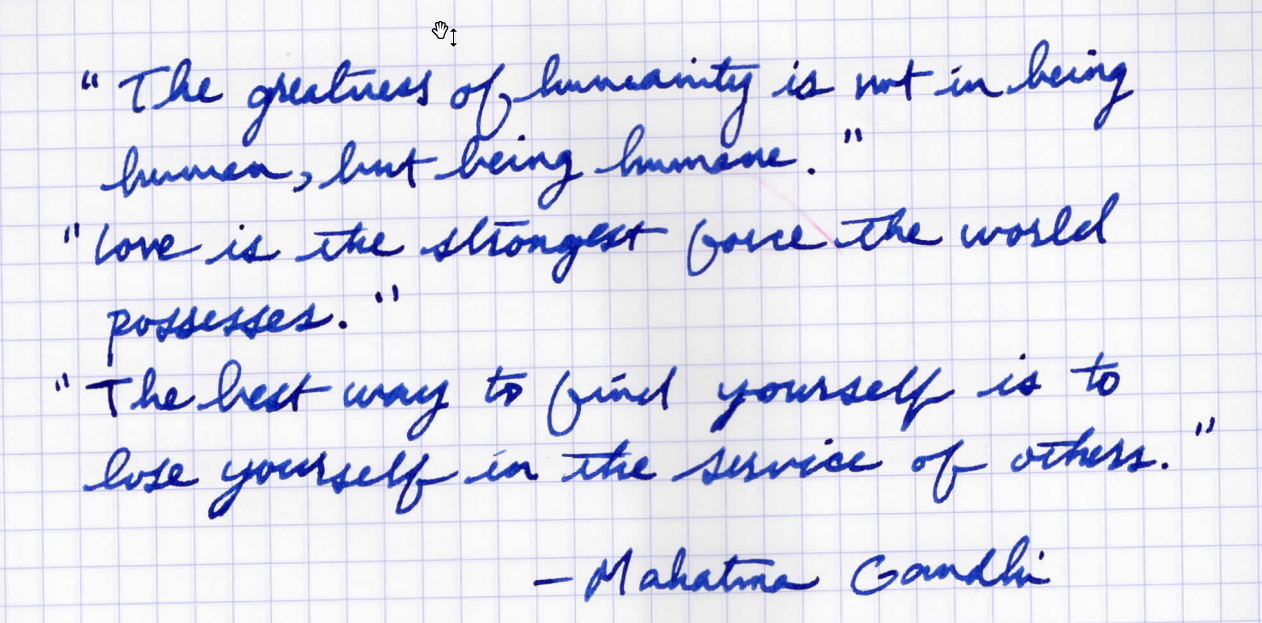 "The greatness of humanity is not in being
human, but being humane."
"Love is the strongest force the world
possesses."
"The best way to find yourself is to
lose yourself in the service of others."
– Mahatma Gandhi